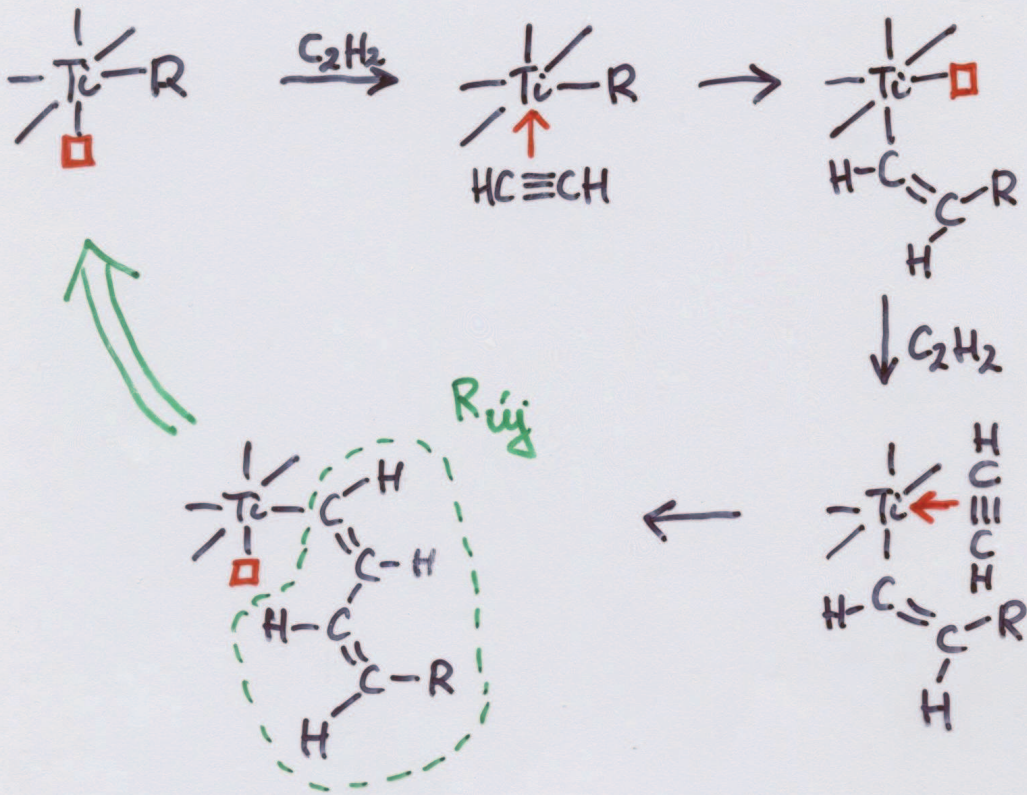 Ti-R
C₂H₂
Ti-R
HC≡CH
Ti
H-C
C-R
H
C₂H₂
R új
H
C
Ti
C
H
H-C
C-R
H
Ti-C
H
C-H
H-C
C-R
H